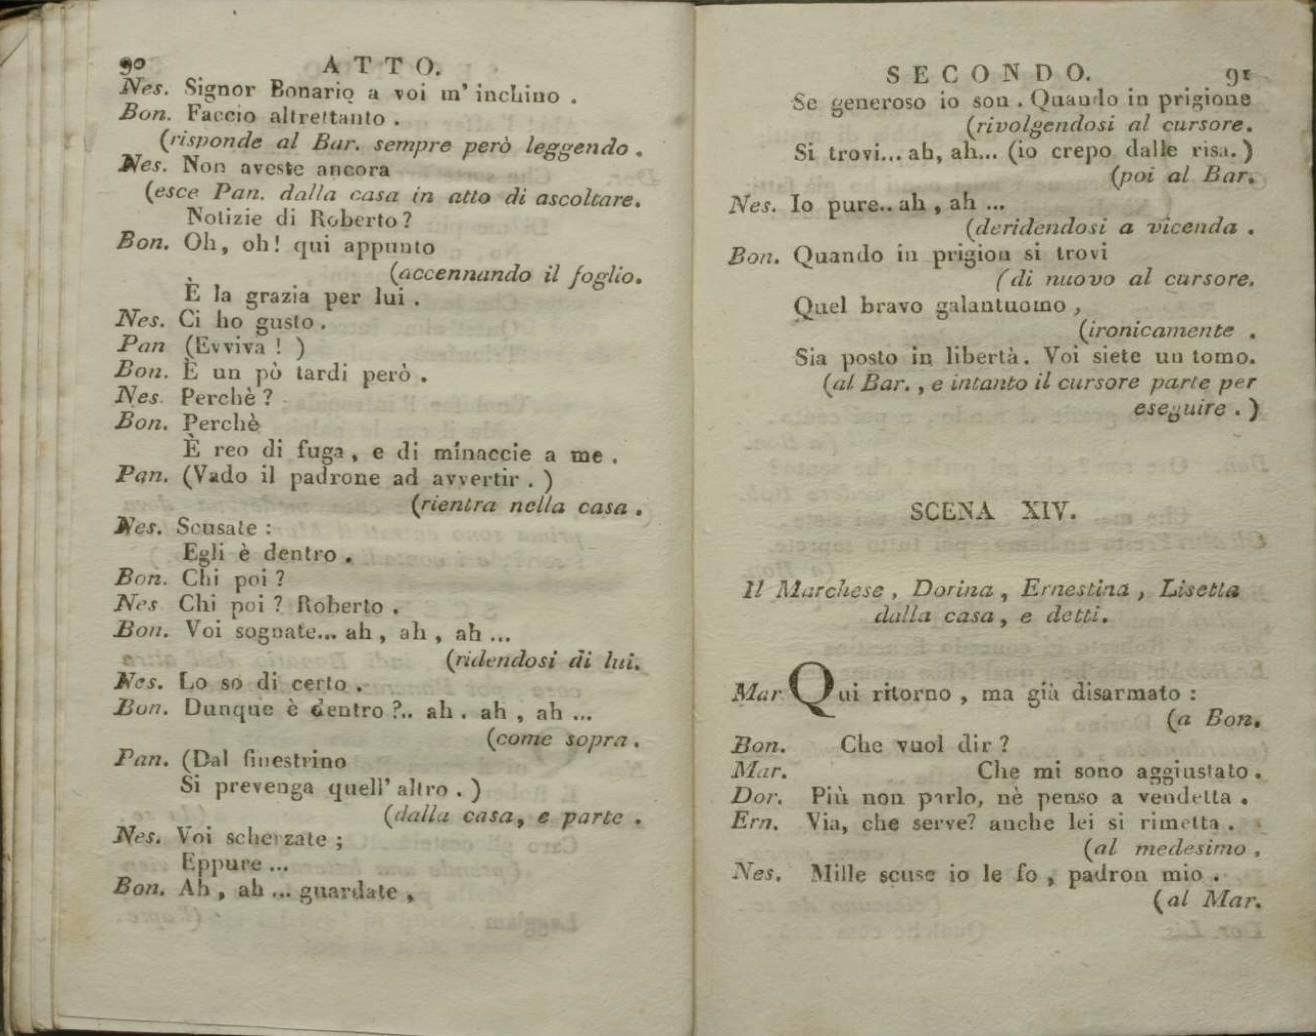 90 ATTO.
Nes. Signor Bonario a voi m' inchino .
Bon. Faccio altrettanto .
(risponde al Bar. sempre però leggendo .
Nes. Non aveste ancora
(esce Pan. dalla casa in atto di ascoltare.
Notizie di Roberto?
Bon. Oh, oh! qui appunto
(accennando il foglio.
È la grazia per lui .
Nes. Ci ho gusto .
Pan (Evviva ! )
Bon. È un pò tardi però .
Nes. Perchè ?
Bon. Perchè
È reo di fuga , e di minaccie a me .
Pan. (Vado il padrone ad avvertir . )
(rientra nella casa .
Nes. Scusate :
Egli è dentro .
Bon. Chi poi ?
Nes Chi poi ? Roberto .
Bon. Voi sognate... ah , ah , ah ...
(ridendosi di lui.
Nes. Lo so di certo .
Bon. Dunque è dentro ?.. ah . ah , ah ...
(come sopra .
Pan. (Dal finestrino
Si prevenga quell' altro . )
(dalla casa, e parte .
Nes. Voi scherzate ;
Eppure ...
Bon. Ah , ah ... guardate ,
SECONDO. 91
Se generoso io son . Quando in prigione
(rivolgendosi al cursore.
Si trovi... ah, ah... (io crepo dalle risa. )
(poi al Bar.
Nes. Io pure.. ah , ah ...
(deridendosi a vicenda .
Bon. Quando in prigion si trovi
(di nuovo al cursore.
Quel bravo galantuomo ,
(ironicamente .
Sia posto in libertà. Voi siete un tomo.
(al Bar. , e intanto il cursore parte per
eseguire . )
SCENA XIV.
Il Marchese , Dorina , Ernestina , Lisetta
dalla casa , e detti.
Mar Qui ritorno , ma già disarmato :
(a Bon.
Bon. Che vuol dir ?
Mar. Che mi sono aggiustato .
Dor. Più non parlo, nè penso a vendetta .
Ern. Via, che serve? anche lei si rimetta .
(al medesimo ,
Nes. Mille scuse io le fo , padron mio .
(al Mar.